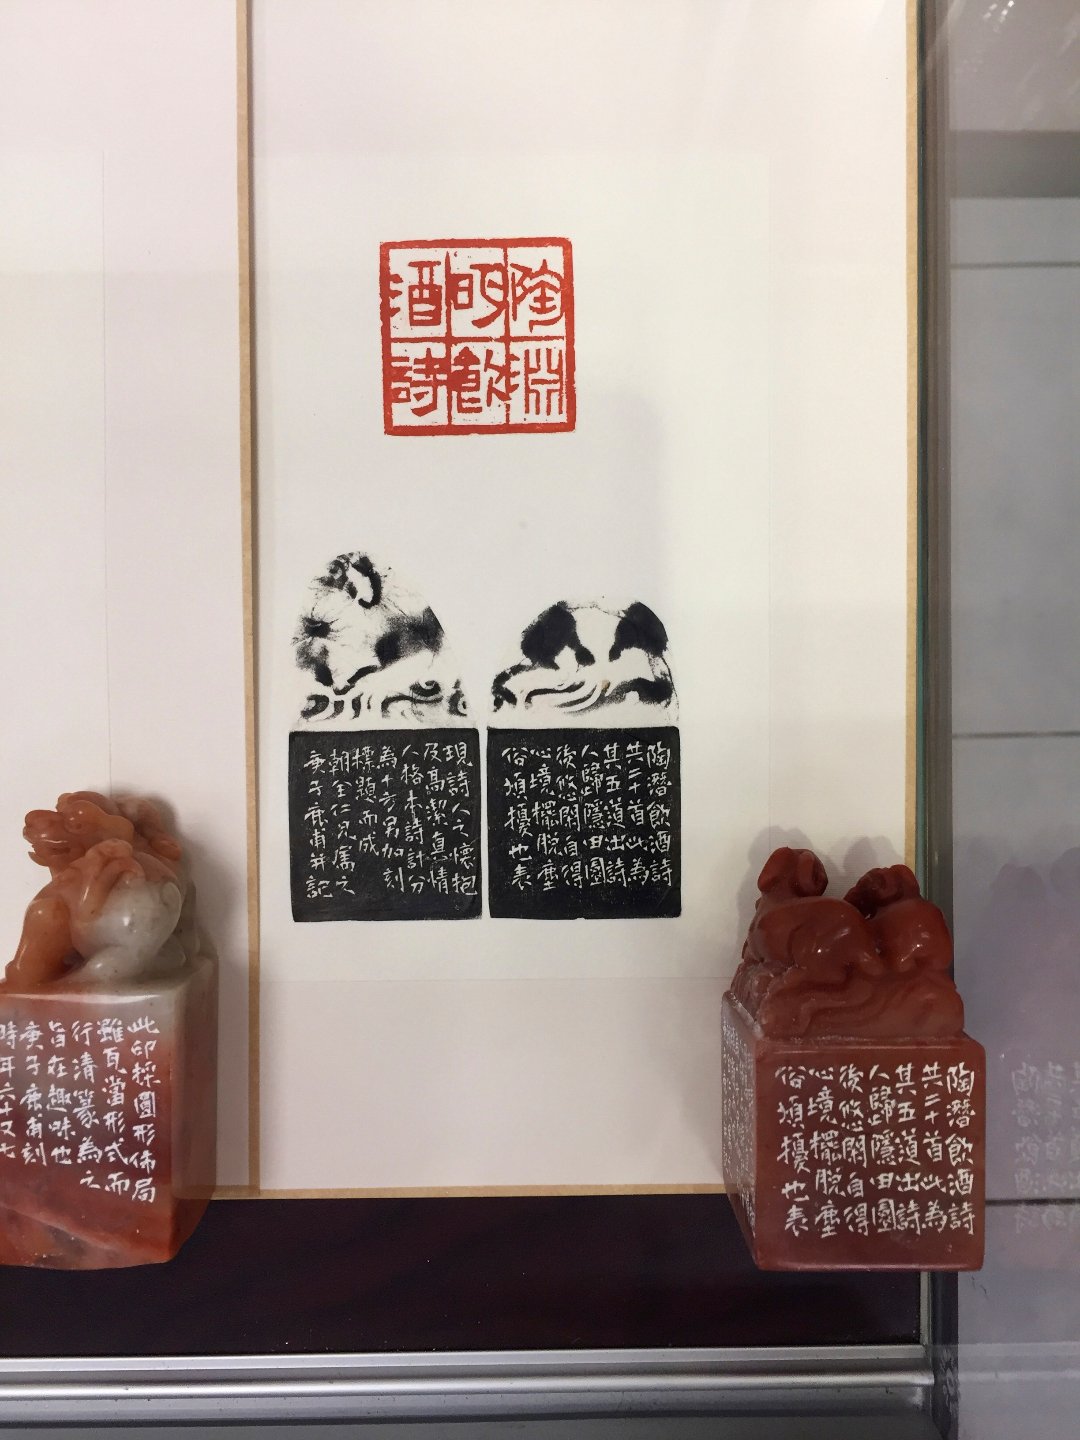 陶淵
明飲
酒詩
陶潛飲酒詩
共二十首此為
其五道出詩
人歸隱田園
後悠閑自得
心境擺脫塵
俗煩擾也表
現詩人之懷抱
及高潔真情
人格本詩計分
為十方另加刻
標題而成
朝全仁兄屬之
庚子鹿甫并記
此印採圓形佈局
雖瓦當形式而
行清篆為之
旨在趣味也
庚子鹿甫刻
時年六十又七
陶潛飲酒詩
共二十首此為
其五道出詩
人歸隱田園
後悠閑自得
心境擺脫塵
俗煩擾也表